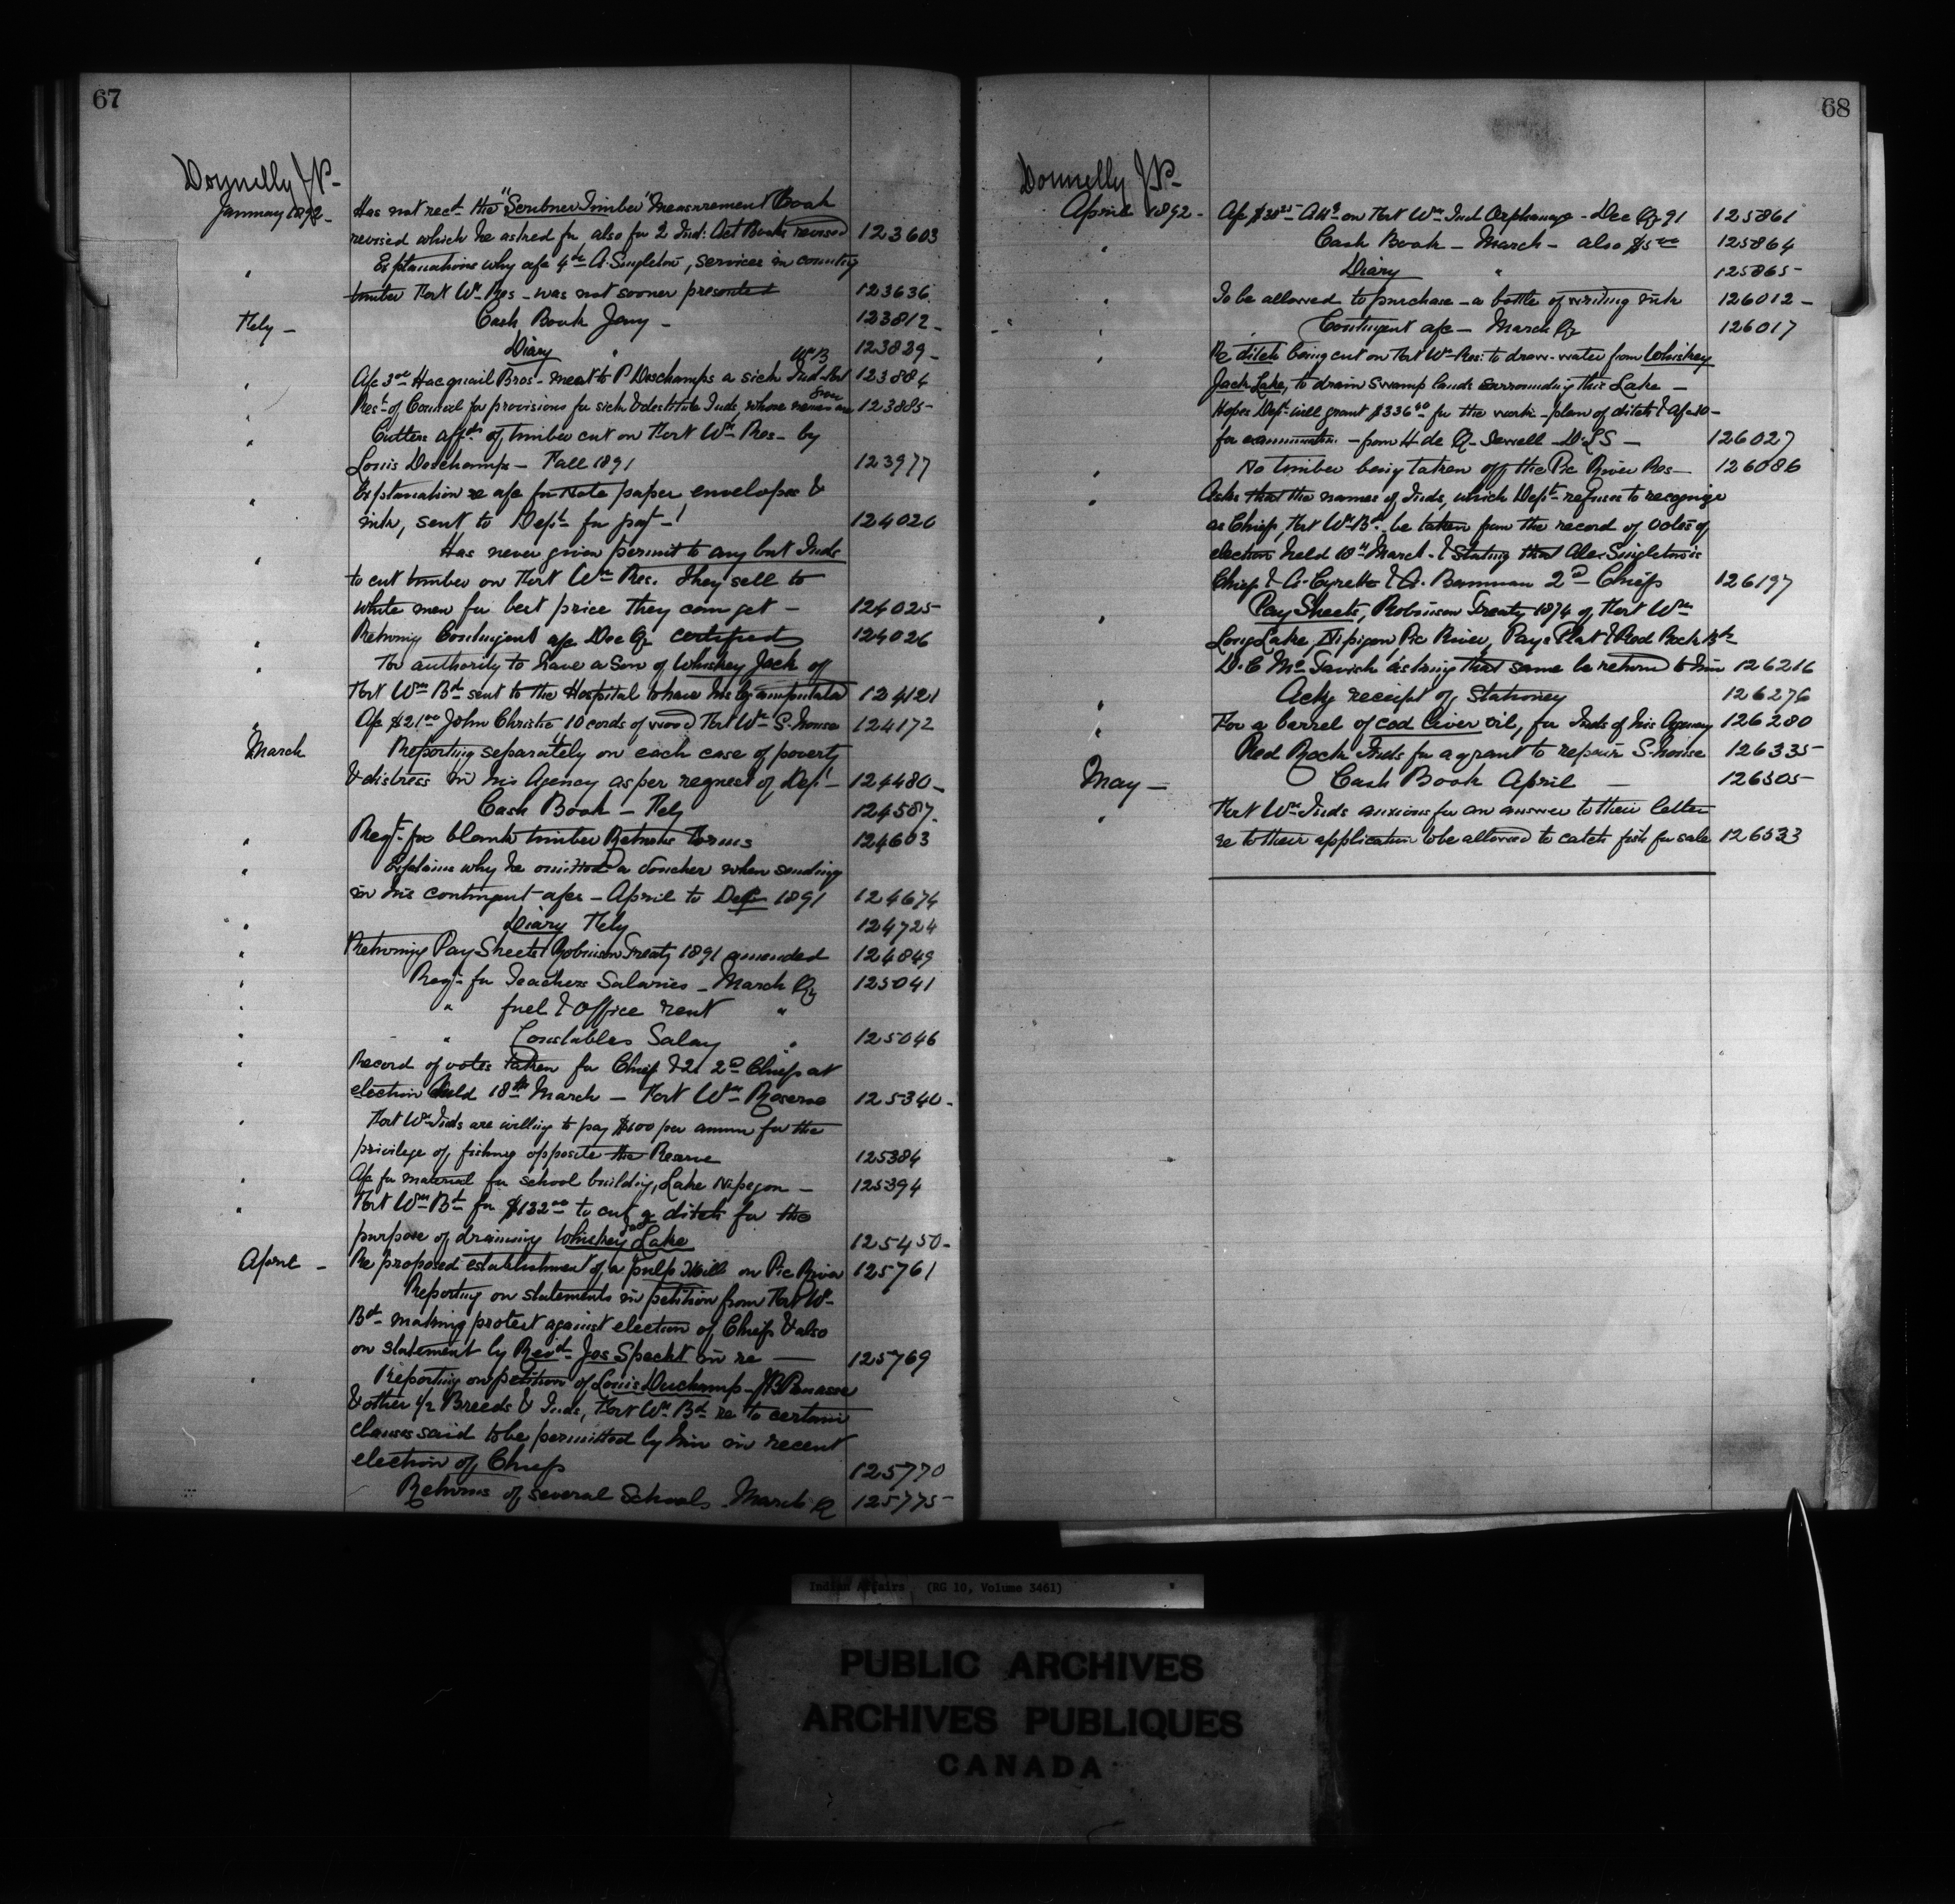 67
Donnelly J.P.-
January 1892- Has not recd the "Scribner Timber" Measurement Book
revised which he asked for, also for 2 Ind: Act Books revised 123603
" Explanations why a/c 4 00 A. Singleton, services in county
timber Fort Wm Res - was not sooner presented 123636
Feby - Cash Book Jany - 123812-
Diary " 123829-
" A/c 3 00 Hacquoil Bros- meat to P. Deschamps a sick Ind. Fort Wm B 123884
" Rest of Council for provisions for sick & destitute Inds, whose names are given 123885-
" Cutters affdt of timber cut on Fort Wm Res- by
Louis Deschamps - Fall 1891 123977
" Explanation re a/c for Note paper envelopes &
ink, sent to Dept for pay-t 124020
" Has never given permit to any but Inds
to cut timber on Fort Wm Res. They sell to
white men for best price they can get - 124025-
" Returng Contingent a/c Dec Qr certified 124026
" For authority to have a Son of Whiskey Jack of
Fort Wm Bd sent to the Hospital to have his leg amputated 124121
" A/c $21 00 John Christie 10 cords of wood Fort Wm S. house 124172
March Reporting separately on each case of poverty
& distress in his Agency as per request of Dept - 124480-
Cash Book - Feby 124587.
" Reqt for blank timber Returns Forms 124603
" Explains why he omitted a voucher when sending
in his contingent a/cs - April to Decr 1891 124674
" Diary Feby 124724
" Returning Pay Sheets Robinson Treaty 1891 amended 124849
" Reqt for Teachers Salaries - March Qr 125041
" " fuel & Office rent "
" " Constables Salary " 125046
" Record of votes taken for Chief & 2 2nd Chiefs at
election held 18th March - Fort Wm Reserve 125340-
" Fort Wm Inds are willing to pay $100 per annum for the
privilege of fishing opposite the Reserve 125384
" A/c for material for school building, Lake Nipegon - 125394
" Fort Wm Bd for $132 00 to cut a ditch for the
purpose of draining Whiskey Jack Lake 125450-
April - Re proposed establishment of a pulp Mill on Pic River 125761
Reporting on statements in petition from Fort Wm
Bd making protest against election of Chiefs & also
on statement by Revd Jos Specht in re - 125769
" Reporting on petition of Louis Duchamp - J.B. Penasse
& other 1/2 Breeds & Inds, Fort Wm Bd re to certain
clauses said to be permitted by him in recent
election of Chiefs 125770
Returns of several Schools March Qr 125775-
68
Donnelly J.P.-
April 1892- A/c $20 25 on Fort Wm Ind Orphanage - Dec Qr 91 125861
" Cash Book - March - also $5 00 125864
Diary " 125865-
" To be allowed to purchase - a bottle of writing ink 126012-
" Contingent a/c - March Qr 126017
" Re ditch being cut on Fort Wm Res: to draw water from Whiskey
Jack Lake, to drain swamp lands surrounding this Lake -
Hopes Dept will grant $336 40 for the work - plan of ditch & a/c -
for examination - from H de Q- Sewell - D.L.S - 126027
" No timber being taken off the Pic River Res- 126086
" Asks that the names of Inds, which Dept refuses to recognize
as Chiefs, Fort Wm Bd, be taken from the record of votes of
election held 18th March - & stating that Alex. Singleton is
Chief & A. Cyrette & A. Bannan 2nd Chiefs 126197
" Pay Sheets, Robinson Treaty 1874 of Fort Wm
Long Lake, Nipigon, Pic River, Pays Plat & Red Rock Bds
D.C. McTavish asking that same be returnd to him 126216
" Ackg receipt of Stationery 126276
" For a barrel of cod liver oil, for Inds of his Agency 126280
Red Rock Inds for a grant to repair S. house 126335-
May - Cash Book April - 126505-
" Fort Wm Inds anxious for an answer to their letter
re to their application to be allowed to catch fish for sale 126533
Indian Affairs (RG 10, Volume 3461)
PUBLIC ARCHIVES
ARCHIVES PUBLIQUES
CANADA